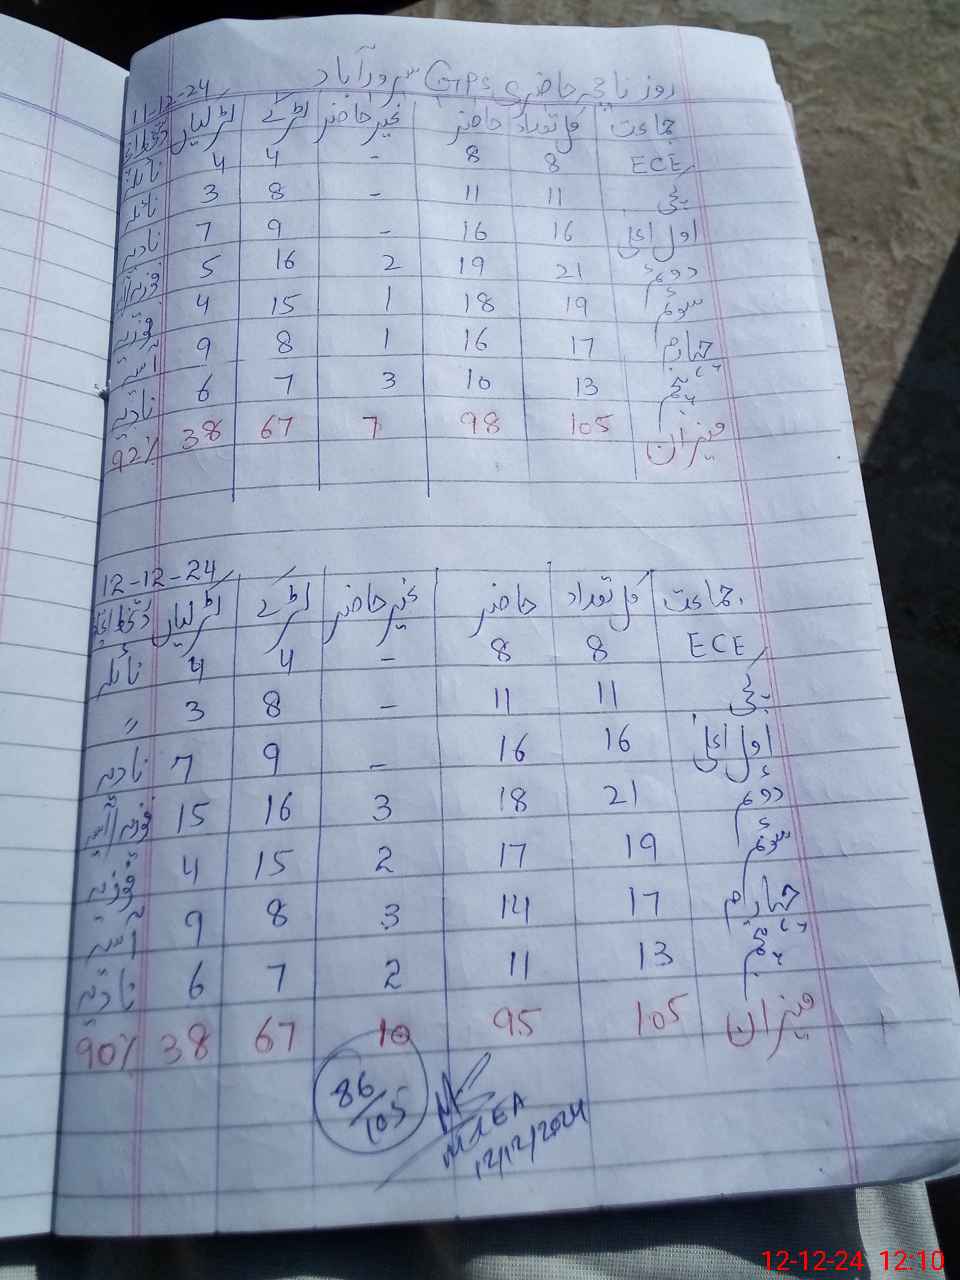 روزنامچہ حاضری GPS سرورآباد
11-12-24
جماعت کل تعداد حاضر غیر حاضر لڑکے لڑکیاں
ECE 8 8 - 4 4
پکی 11 11 - 8 3
اول اعلیٰ 16 16 - 9 7 نادیہ
دوم 21 19 2 16 5
سوم 19 18 1 15 4 فوزیہ
چہارم 17 16 1 8 9 آسیہ
پنجم 13 10 3 7 6 نادیہ
میزان 105 98 7 67 38 92%
12-12-24
جماعت کل تعداد حاضر غیر حاضر لڑکے لڑکیاں
ECE 8 8 - 4 4
پکی 11 11 - 8 3 〃
اول اعلیٰ 16 16 - 9 7 نادیہ
دوم 21 18 3 16 15
سوم 19 17 2 15 4 فوزیہ
چہارم 17 14 3 8 9 آسیہ
پنجم 13 11 2 7 6 نادیہ
میزان 105 95 10 67 38 90%
86/105
MEA
12/12/2024
12-12-24 12:10